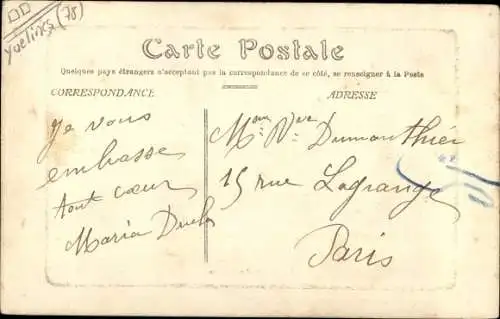 Yvelines (78)
Carte Postale
Quelques pays étrangers n'acceptant pas la correspondance de ce côté, se renseigner à la Poste
CORRESPONDANCE
Je vous
embrasse
tout cœur
Maria
ADRESSE
Mme Vve Dumonthier
15 rue Lagrange
Paris